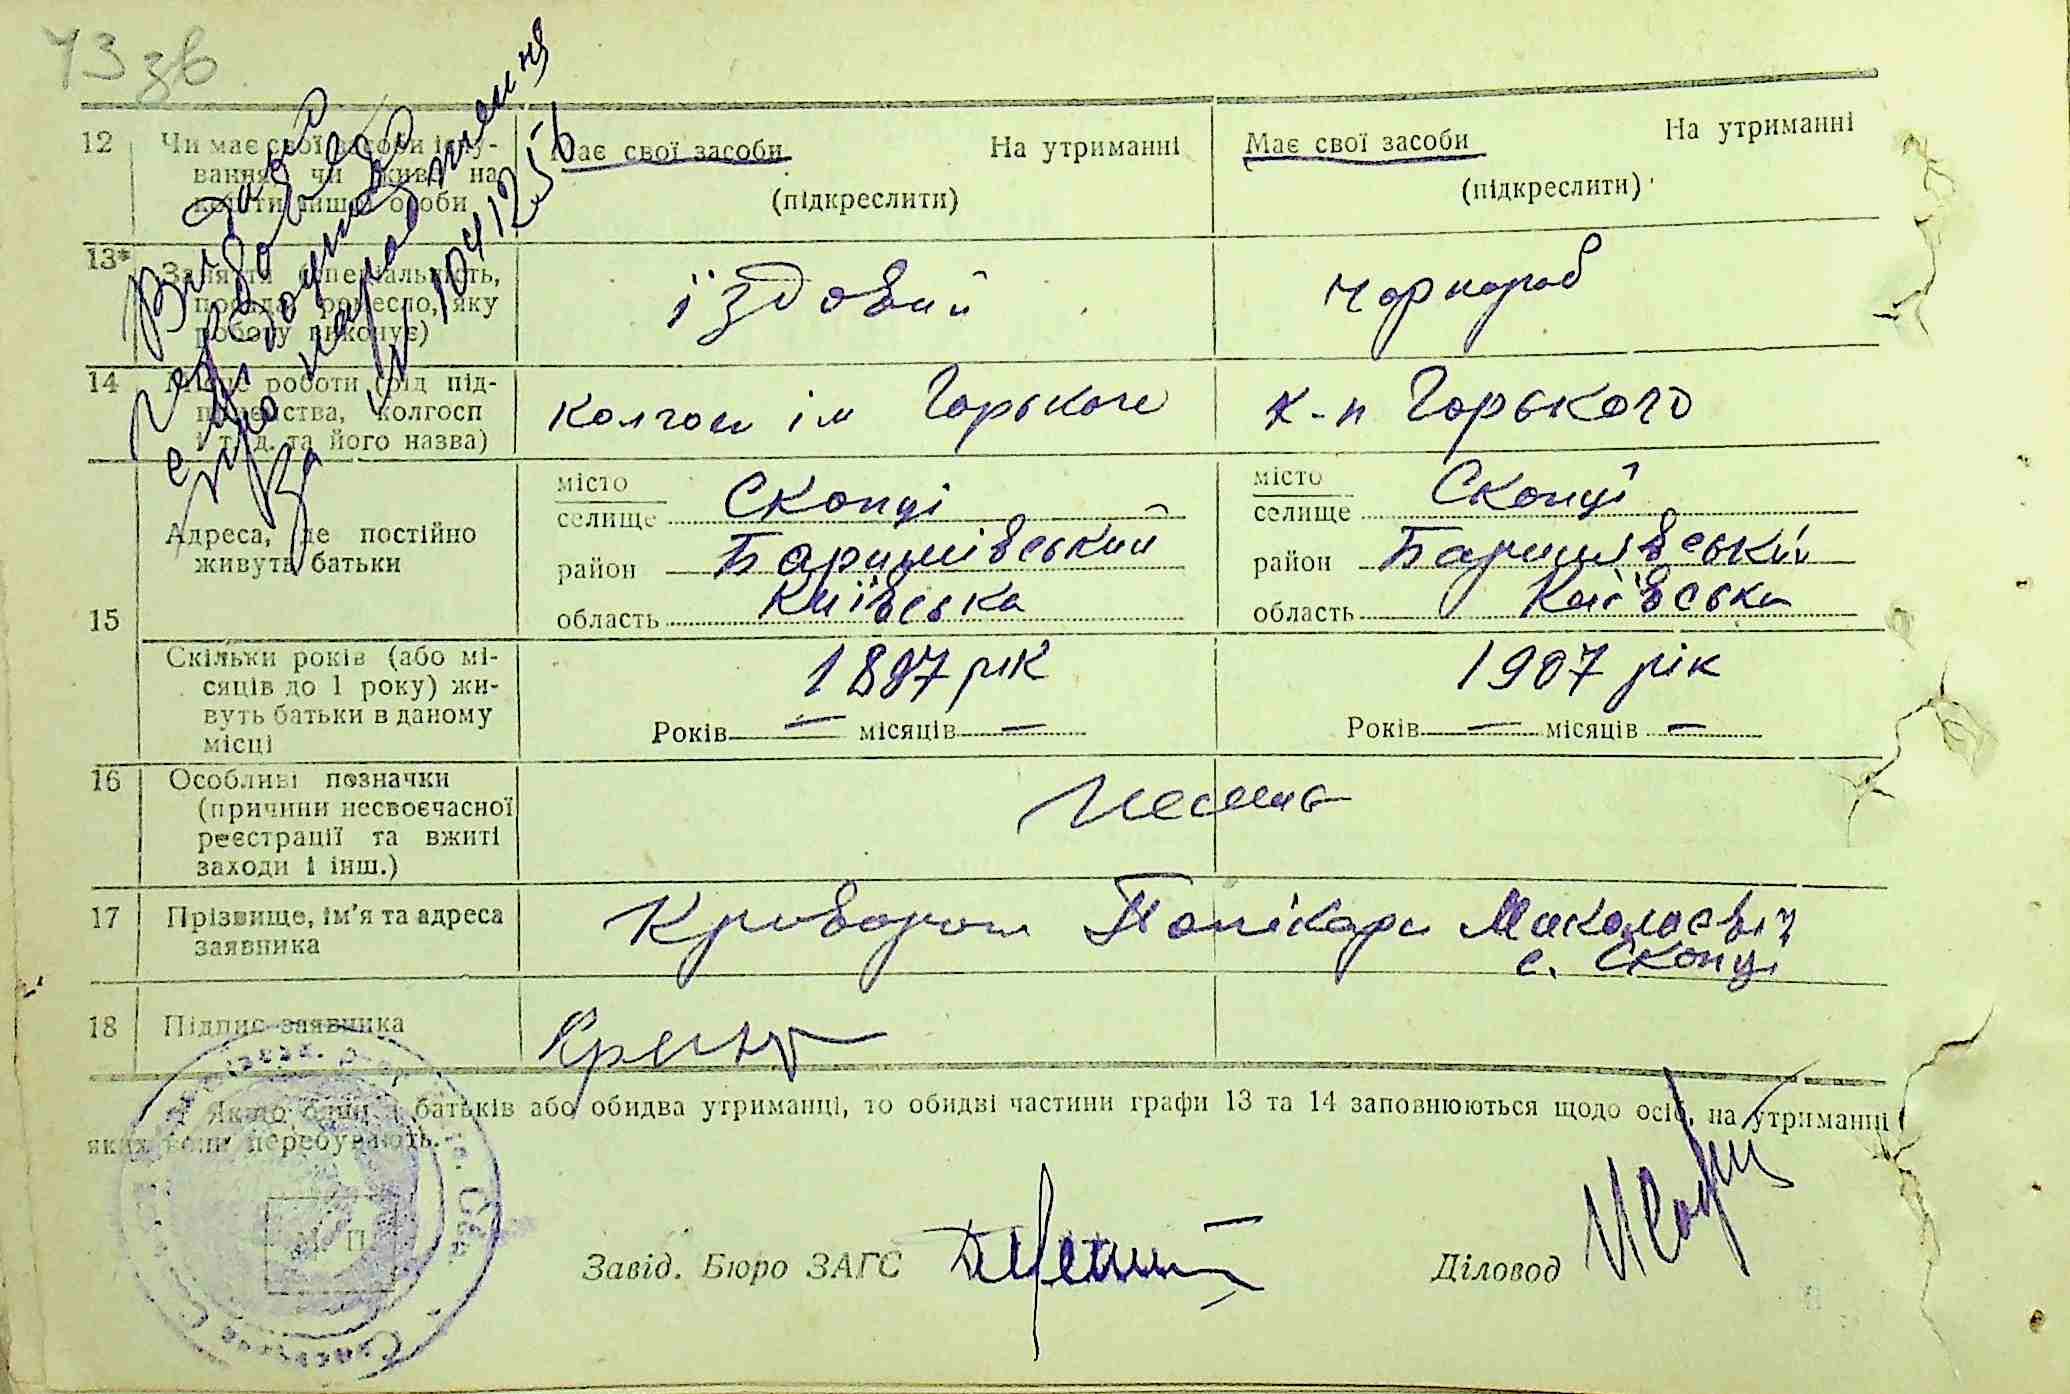 73 зв
12 Чи має свої засоби існу- Має свої засоби На утриманні Має свої засоби На утриманні
вання, чи живе на
кошти іншої особи (підкреслити) (підкреслити)
13* Заняття (спеціальність,
посада, ремесло, яку їздовий чорнороб
роботу виконує)
14 Місце роботи (від під-
приємства, колгосп колгосп ім Горького к-п Горького
і т. д. та його назва)
15 Адреса, де постійно
живуть батьки
місто
селище Скопці
район Баришівський
область Київська
місто
селище Скопці
район Баришівський
область Київська
Скільки років (або мі-
сяців до 1 року) жи-
вуть батьки в даному
місці
1897 рік
Років — місяців —
1907 рік
Років — місяців —
16 Особливі позначки
(причини несвоєчасної
реєстрації та вжиті
заходи і інш.)
17 Прізвище, ім'я та адреса
заявника
Полікарп Миколаєвіч
с. Скопці
18 Підпис заявника
* Якщо один з батьків або обидва утриманці, то обидві частини графи 13 та 14 заповнюються щодо осіб, на утриманні
яких вони перебувають.
М. П.
Завід. Бюро ЗАГС
Діловод
Видано
про народження